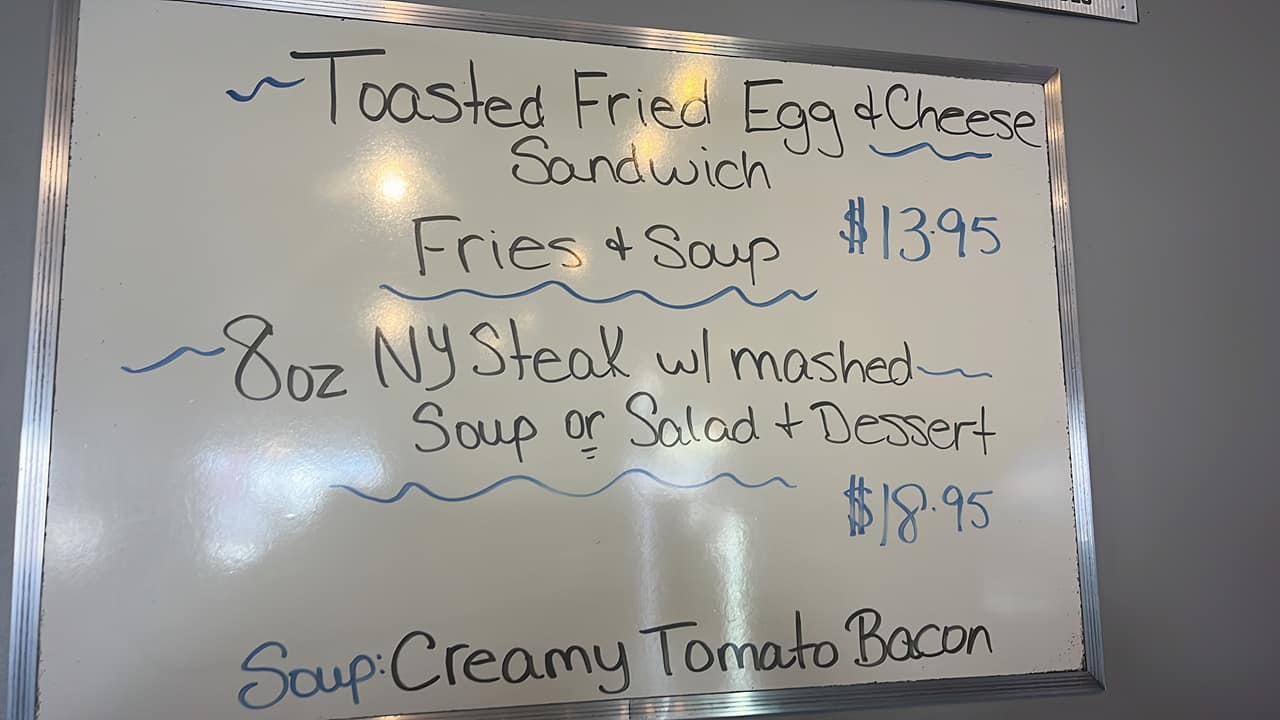 Toasted Fried Egg & Cheese
Sandwich
Fries & Soup $13.95
8oz NY Steak w/ mashed
Soup or Salad + Dessert
$18.95
Soup: Creamy Tomato Bacon